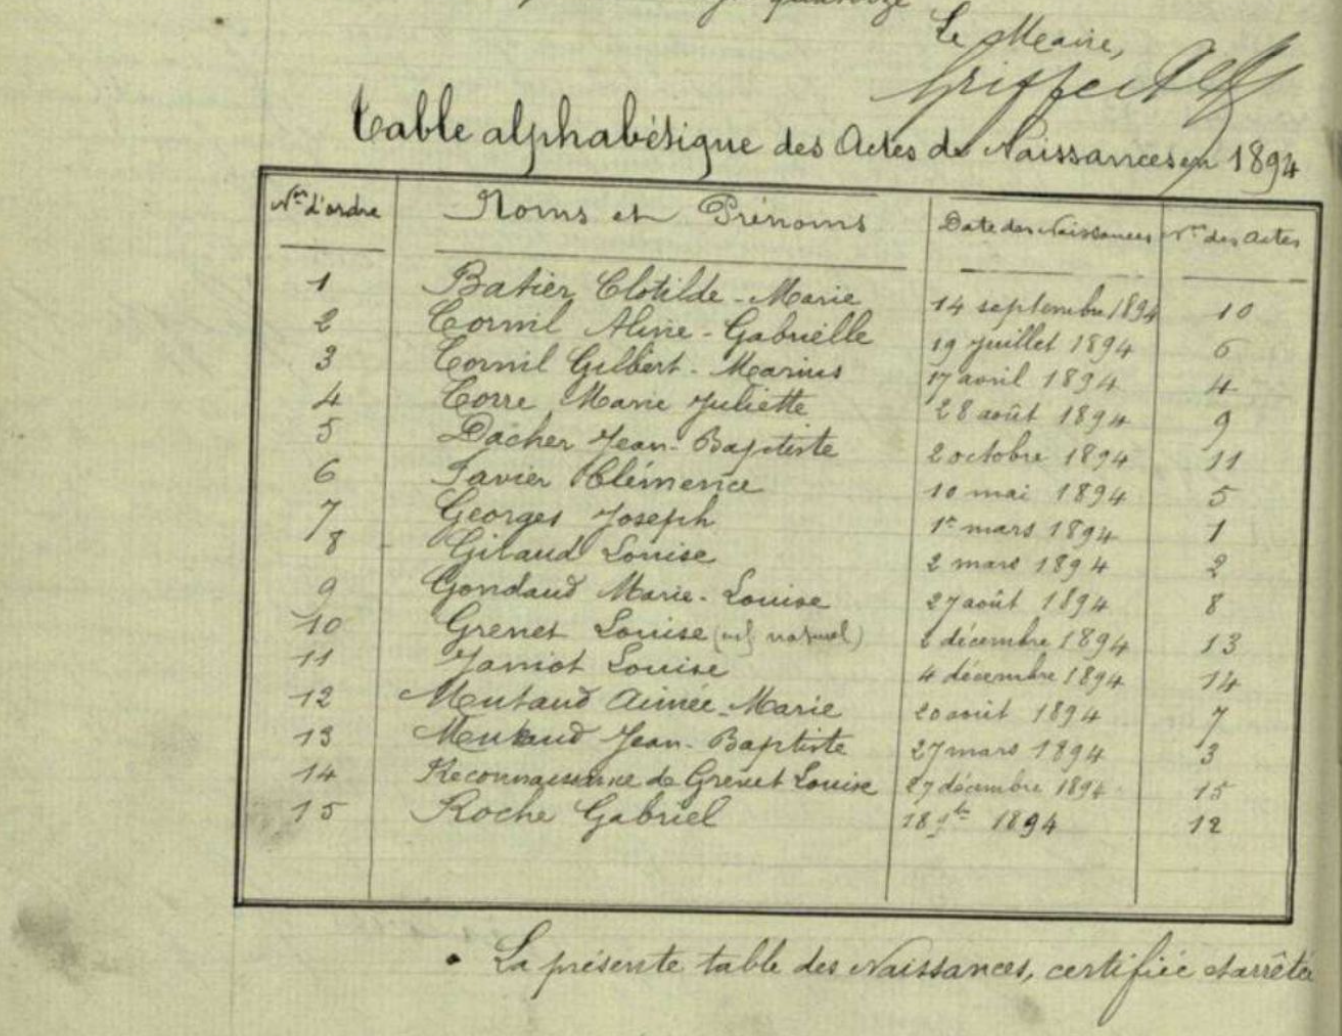 quatorze
Le Maire,
Table alphabétique des Actes de Naissances en 1894
Nos d'ordre Noms et Prénoms Date des Naissances Nos des Actes
1 Batier Clotilde-Marie 14 septembre 1894 10
2 Cornil Aline-Gabrielle 19 juillet 1894 6
3 Cornil Gilbert-Marius 17 avril 1894 4
4 Corre Marie Juliette 28 août 1894 9
5 Dacher Jean-Baptiste 2 octobre 1894 11
6 Favier Clémence 10 mai 1894 5
7 Georges Joseph 1er mars 1894 1
8 Gilaud Louise 2 mars 1894 2
9 Gondaud Marie-Louise 27 août 1894 8
10 Grenet Louise (enf naturel) 2 décembre 1894 13
11 Janiot Louise 4 décembre 1894 14
12 Mutaud Aimée-Marie 20 août 1894 7
13 Jean-Baptiste 27 mars 1894 3
14 Reconnaissance de Grenet Louise 27 décembre 1894 15
15 Roche Gabriel 18 1894 12
La présente table des Naissances, certifiée et arrêtée